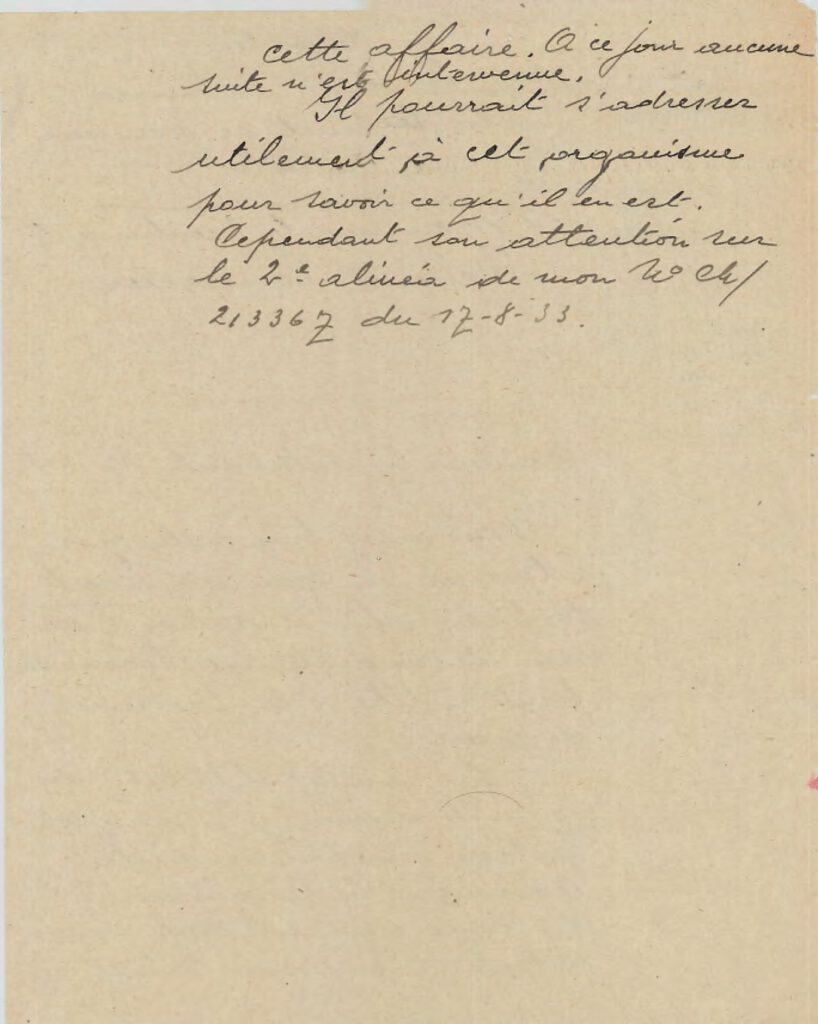 cette affaire. A ce jour aucune
suite n'est intervenue.
Il pourrait s'adresser
utilement à cet organisme
pour savoir ce qu'il en est.
Cependant son attention sur
le 2e alinéa de mon No Ch/
213367 du 17-8-33.